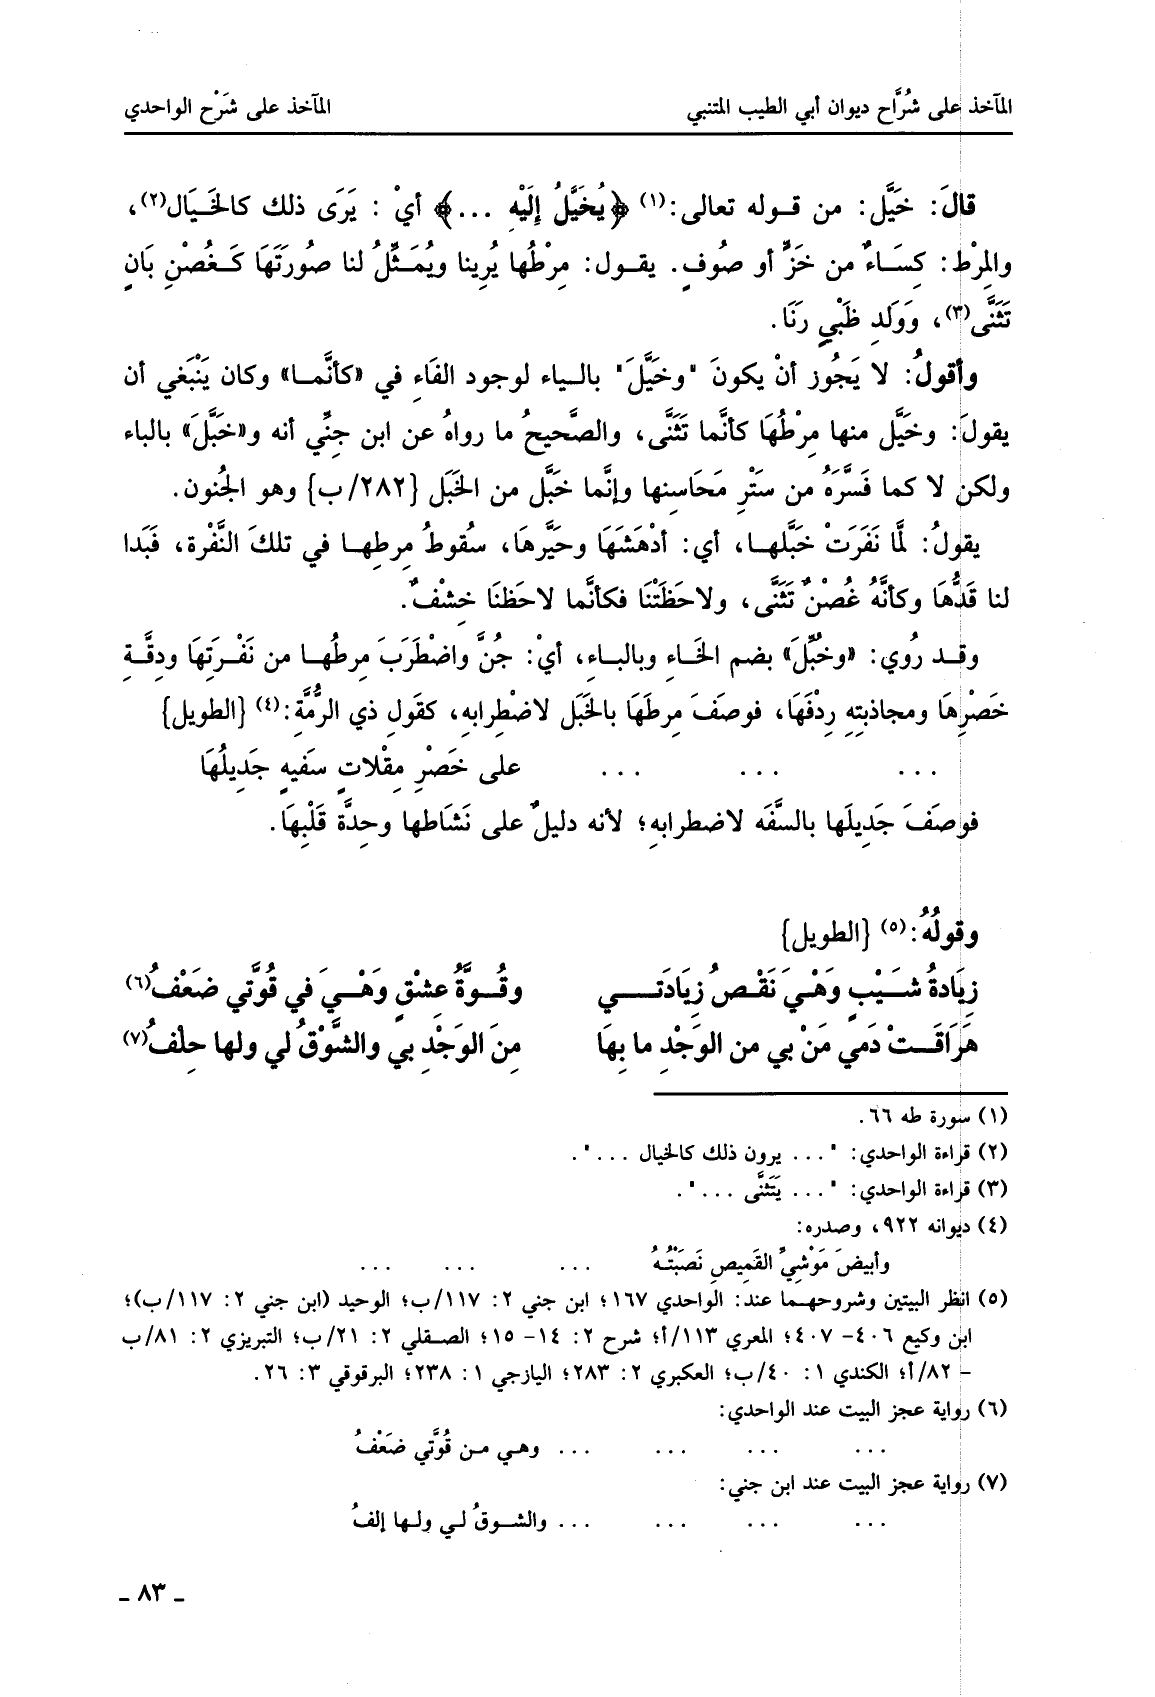 المآخذ على شُرَّاح ديوان أبي الطيب المتنبي المآخذ على شَرْح الواحدي
قالَ: خَيَّل: من قوله تعالى:(١) ﴿يُخَيَّلُ إِلَيْهِ ...﴾ أيْ : يَرَى ذلك كالخَيَال(٢)،
والمِرْط: كِسَاءٌ من خَزٍّ أو صُوفٍ. يقول: مِرْطُها يُرينا ويُمَثِّلُ لنا صُورَتَهَا كَغُصْنِ بَانٍ
تَثَنَّى(٣)، وَوَلَدِ ظَبْيٍ رَنَا.
وأقولُ: لا يَجُوز أنْ يكونَ "وخَيَّلَ" بالياء لوجود الفَاءِ في «كأنَّما» وكان يَنْبَغي أن
يقولَ: وخَيَّل منها مِرْطُهَا كأنَّما تَثَنَّى، والصَّحيحُ ما رواهُ عن ابن جنِّي أنه و«خَبَّلَ» بالباء
ولكن لا كما فَسَّرَهُ من سَتْرِ مَحَاسِنها وإنَّما خَبَّل من الخَبَل {٢٨٢/ب} وهو الجُنون.
يقولُ: لمَّا نَفَرَتْ خَبَّلها، أي: أدْهَشَهَا وحَيَّرهَا، سقُوطُ مرطِها في تلكَ النَّفْرة، فَبَدا
لنا قَدُّهَا وكأنَّهُ غُصْنٌ تَثَنَّى، ولاحَظَتْنَا فكأنَّما لاحَظنَا خِشْفٌ.
وقد رُوي: «وخُبِّلَ» بضم الخَاءِ وبالباءِ، أيْ: جُنَّ واضْطَرَبَ مرطُها من نَفْرَتِهَا ودِقَّةِ
خَصْرِهَا ومجاذبتِهِ رِدْفَهَا، فوصفَ مرطَهَا بالخَبَل لاضْطِرابهِ، كقَولِ ذي الرُّمَّةِ:(٤) {الطويل}
... ... ... على خَصْرِ مِقْلاتٍ سَفيهٍ جَدِيلُهَا
فوصَفَ جَدِيلَها بالسَّفَه لاضطرابهِ؛ لأنه دليلٌ على نَشَاطها وحِدَّة قَلْبِهَا.
وقولُهُ:(٥) {الطويل}
زِيَادةُ شَيْبٍ وَهْيَ نَقْصُ زِيَادَتي وقُوَّةُ عِشْقٍ وَهْيَ في قُوَّتي ضَعْفُ(٦)
هَرَاقَتْ دَمي مَنْ بي من الوَجْدِ ما بِهَا مِنَ الوَجْدِ بي والشَّوْقُ لي ولها حِلْفُ(٧)
(١) سورة طه ٦٦.
(٢) قراءة الواحدي: "... يرون ذلك كالخيال ...".
(٣) قراءة الواحدي: "... يَتَثَنَّى ...".
(٤) ديوانه ٩٢٢، وصدره:
وأبيضَ مَوْشِيِّ القَميصِ نَصَبْتُهُ ... ... ...
(٥) انظر البيتين وشروحهما عند: الواحدي ١٦٧؛ ابن جني ٢: ١١٧/ب؛ الوحيد (ابن جني ٢: ١١٧/ب)؛
ابن وكيع ٤٠٦- ٤٠٧؛ المعري ١١٣/أ؛ شرح ٢: ١٤- ١٥؛ الصقلي ٢: ٢١/ب؛ التبريزي ٢: ٨١/ب
- ٨٢/أ؛ الكندي ١: ٤٠/ب؛ العكبري ٢: ٢٨٣؛ اليازجي ١: ٢٣٨؛ البرقوقي ٣: ٢٦.
(٦) رواية عجز البيت عند الواحدي:
... ... ... ... وهي من قُوَّتي ضَعْفُ
(٧) رواية عجز البيت عند ابن جني:
... ... ... ... والشوقُ لي ولها إلفُ
ـ ٨٣ ـ